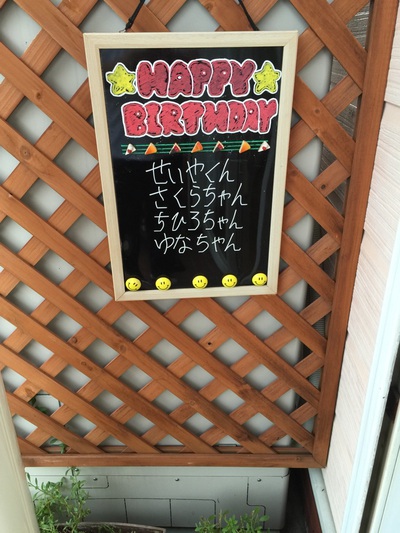 HAPPY
BIRTHDAY
せいやくん
さくらちゃん
ちひろちゃん
ゆなちゃん